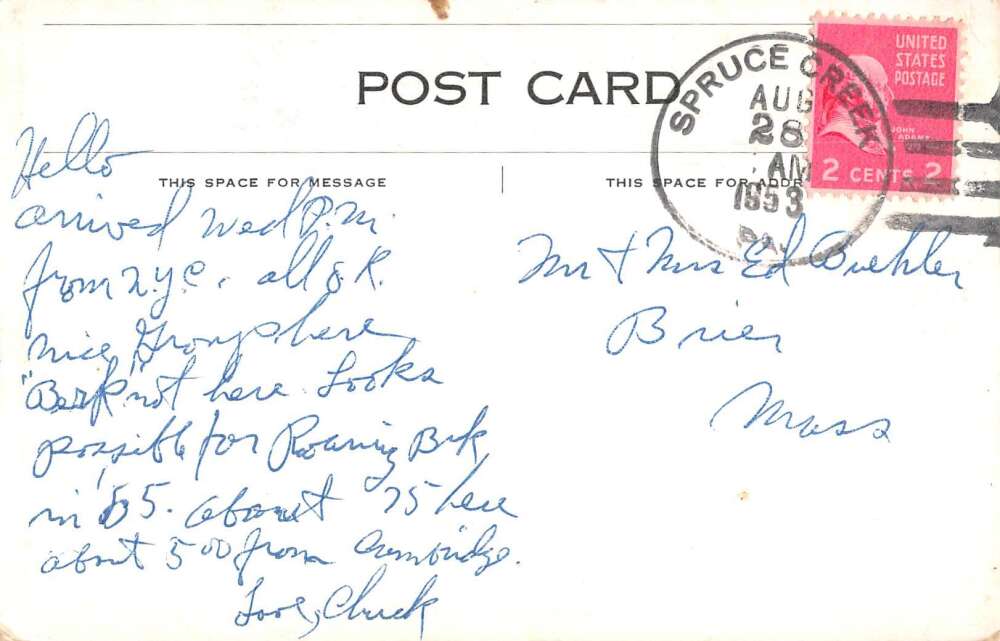 POST CARD
SPRUCE CREEK
AUG
28
AM
1953
PA.
UNITED
STATES
POSTAGE
JOHN
ADAMS
2 CENTS 2
THIS SPACE FOR MESSAGE
THIS SPACE FOR ADDR
Hello
arrived Wed P.M.
from N.Y.C. all O.K.
nice Group here
not here. Looks
possible for Roaring Brk
in '55. about 75 here
about 500 from Cambridge.
Love, Chuck
Mr + Mrs Ed
Brier
Mass